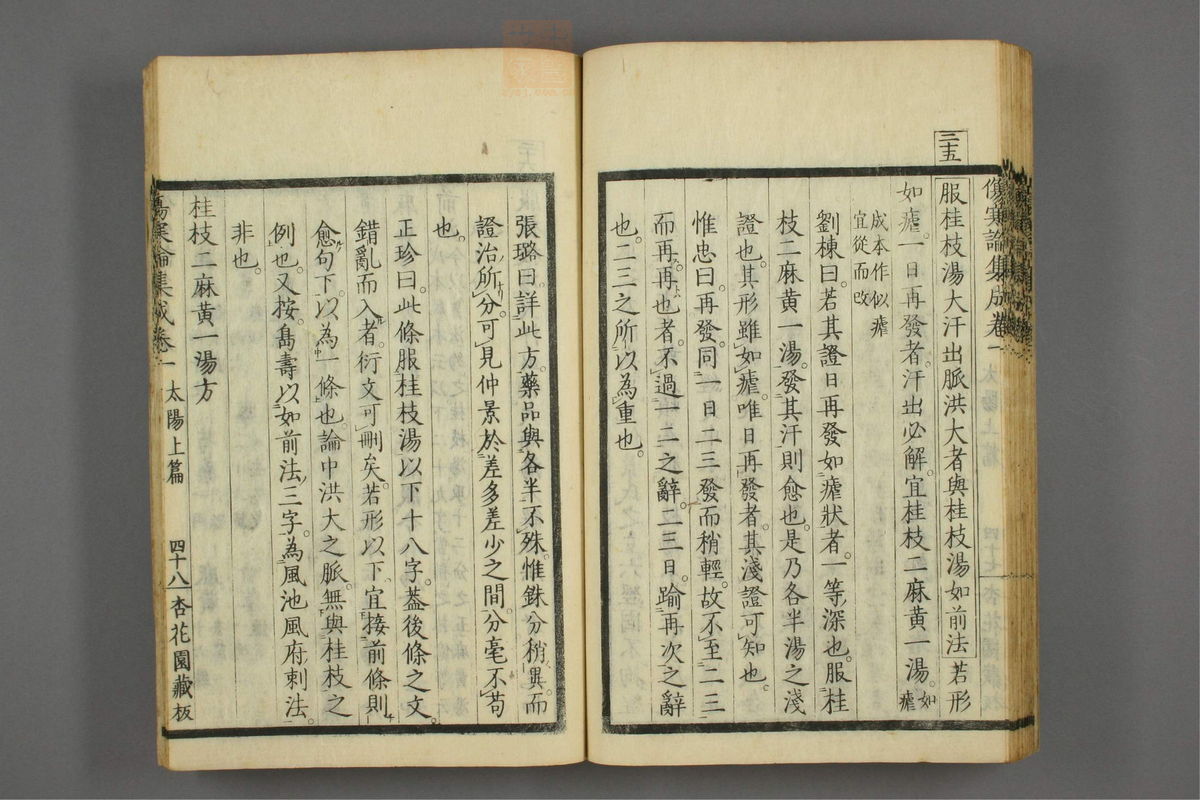 二五
傷寒論集成卷一
服桂枝湯大汗出脈洪大者與桂枝湯如前法若形
如瘧一日再發者汗出必解宜桂枝二麻黃一湯如瘧
成本作似瘧
宜從而改
劉棟曰若其證日再發如瘧狀者一等深也服桂
枝二麻黃一湯發其汗則愈也是乃各半湯之淺
證也其形雖如瘧唯日再發者其淺證可知也
惟忠曰再發同一日二三發而稍輕故不至二三
而再再也者不過一二之辭二三日踰再次之辭
也二三之所以為重也
張璐曰詳此方藥品與各半不殊惟銖分稍異而
證治所分可見仲景於差多差少之間分毫不苟
也
正珍曰此條服桂枝湯以下十八字蓋後條之文
錯亂而入者衍文可刪矣若形以下宜接前條則
愈句下以為一條也論中洪大之脈無與桂枝之
例也又按嶲壽以如前法三字為風池風府刺法
非也
桂枝二麻黃一湯方
傷寒論集成卷一 太陽上篇 四十八 杏花園藏板